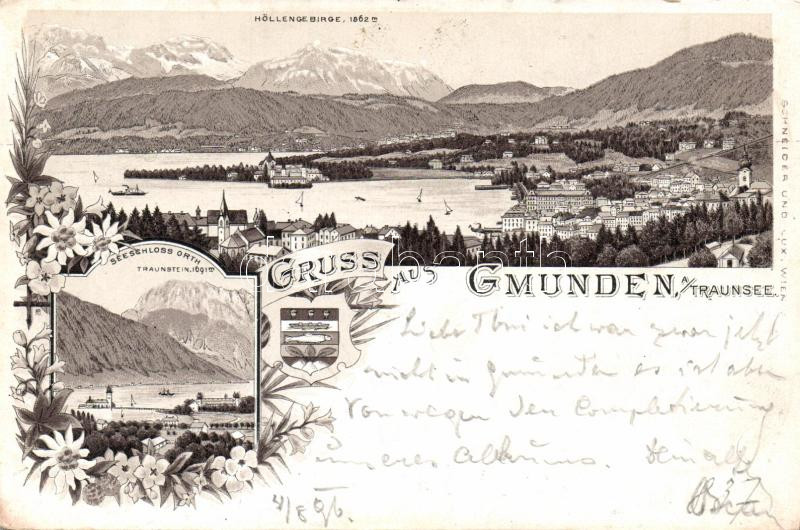 HÖLLENGEBIRGE, 1862 m
SCHNEIDER UND LUX, WIEN
SEESCHLOSS ORTH
TRAUNSTEIN, 1691 m
GRUSS AUS GMUNDEN, A/TRAUNSEE.
darabanth
Liebe Toni ich war zwar jetzt
nicht in Gmunden es ist aber
von wegen den Completierung
unseres Albums.
4/8 96.